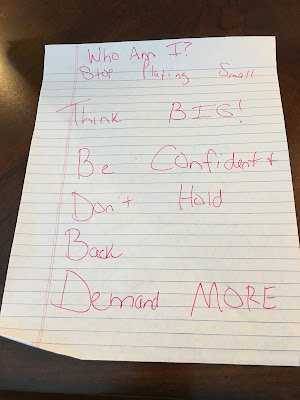 Who Am I?
Stop Playing Small
Think BIG!
Be Confident +
Don't Hold
Back
Demand MORE